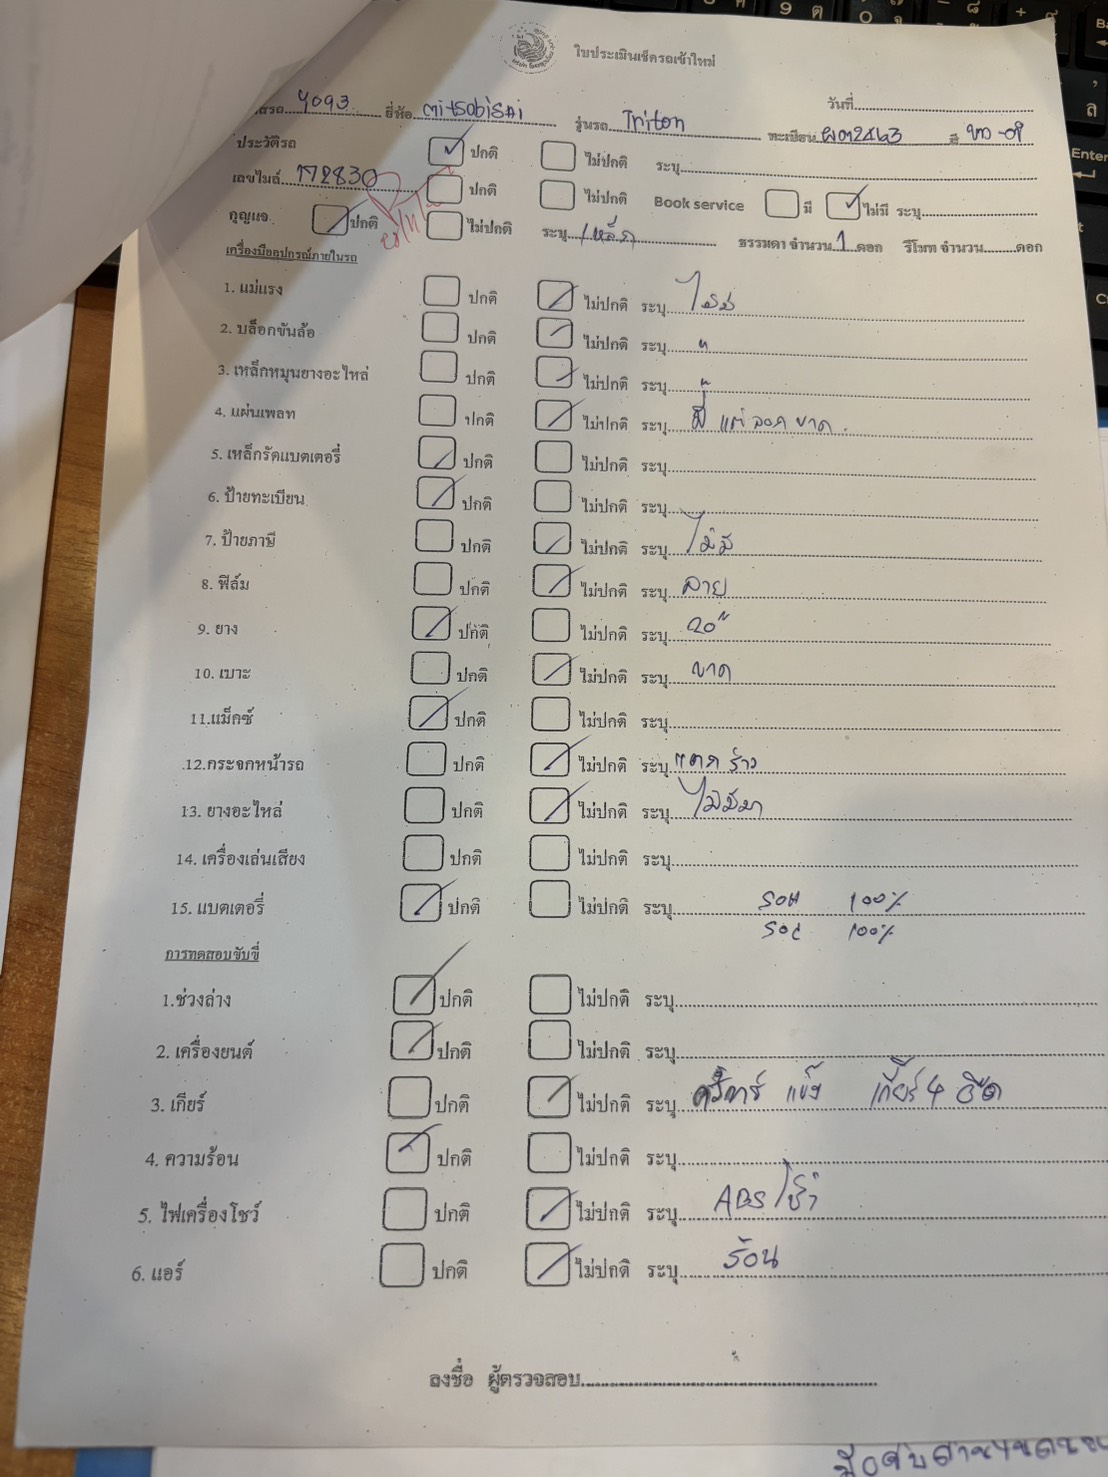 ใบประเมินเช็ครถเข้าใหม่
วันที่
รถ 4093 ยี่ห้อ Mitsobishi รุ่นรถ Triton ทะเบียน 2463 สี
ประวัติรถ ปกติ ไม่ปกติ ระบุ
เลขไมล์ 172830 ปกติ ไม่ปกติ Book service มี ไม่มี ระบุ
กุญแจ ปกติ ไม่ปกติ ระบุ เหล็ก ธรรมดา จำนวน 1 ดอก รีโมท จำนวน ดอก
เครื่องมืออุปกรณ์ภายในรถ
1. แม่แรง ปกติ ไม่ปกติ ระบุ ไม่มี
2. บล็อกขันล้อ ปกติ ไม่ปกติ ระบุ "
3. เหล็กหมุนยางอะไหล่ ปกติ ไม่ปกติ ระบุ "
4. แผ่นเพลท ปกติ ไม่ปกติ ระบุ มี แต่ ขาด
5. เหล็กรัดแบตเตอรี่ ปกติ ไม่ปกติ ระบุ
6. ป้ายทะเบียน ปกติ ไม่ปกติ ระบุ
7. ป้ายภาษี ปกติ ไม่ปกติ ระบุ ไม่มี
8. ฟิล์ม ปกติ ไม่ปกติ ระบุ ลาย
9. ยาง ปกติ ไม่ปกติ ระบุ 20"
10. เบาะ ปกติ ไม่ปกติ ระบุ ขาด
11.แม็กซ์ ปกติ ไม่ปกติ ระบุ
12.กระจกหน้ารถ ปกติ ไม่ปกติ ระบุ แตก ร้าว
13. ยางอะไหล่ ปกติ ไม่ปกติ ระบุ ไม่มีมา
14. เครื่องเล่นเสียง ปกติ ไม่ปกติ ระบุ
15. แบตเตอรี่ ปกติ ไม่ปกติ ระบุ SOH 100%
SOC 100%
การทดสอบขับขี่
1.ช่วงล่าง ปกติ ไม่ปกติ ระบุ
2. เครื่องยนต์ ปกติ ไม่ปกติ ระบุ
3. เกียร์ ปกติ ไม่ปกติ ระบุ แข็ง เกียร์ 4
4. ความร้อน ปกติ ไม่ปกติ ระบุ
5. ไฟเครื่องโชว์ ปกติ ไม่ปกติ ระบุ ABS โชว์
6. แอร์ ปกติ ไม่ปกติ ระบุ ร้อน
ลงชื่อ ผู้ตรวจสอบ